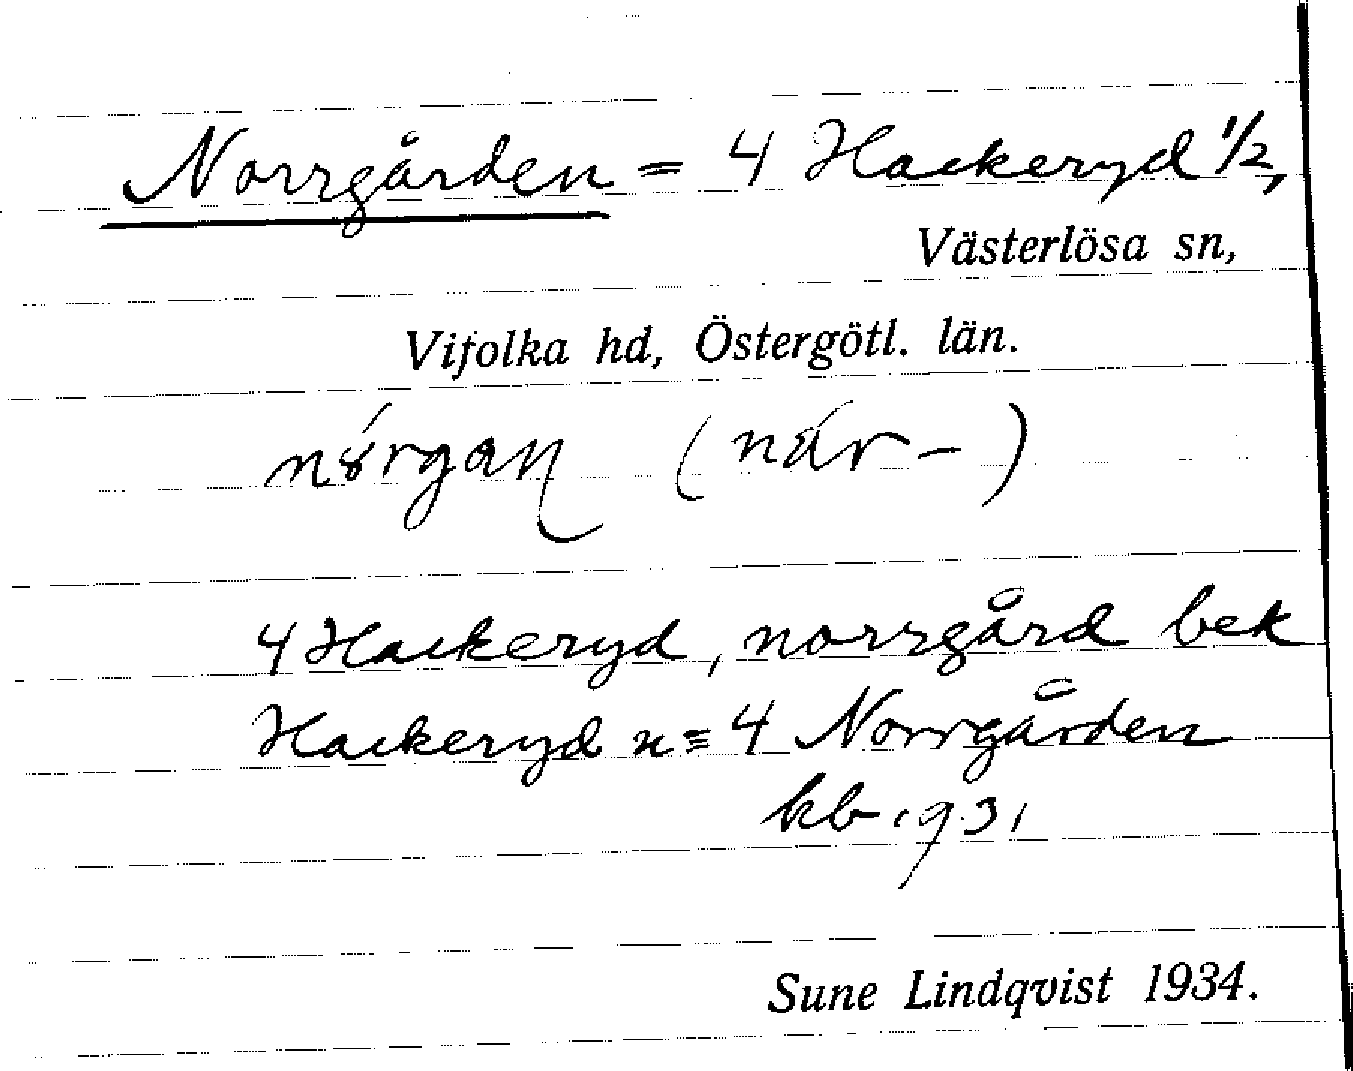 Norrgården = 4 Hackeryd 1/2,
Västerlösa sn,
Vifolka hd, Östergötl. län.
(når-)
4 Hackeryd, norrgård bek
Hackeryd n≡4 Norrgården
kb 1931
Sune Lindqvist 1934.